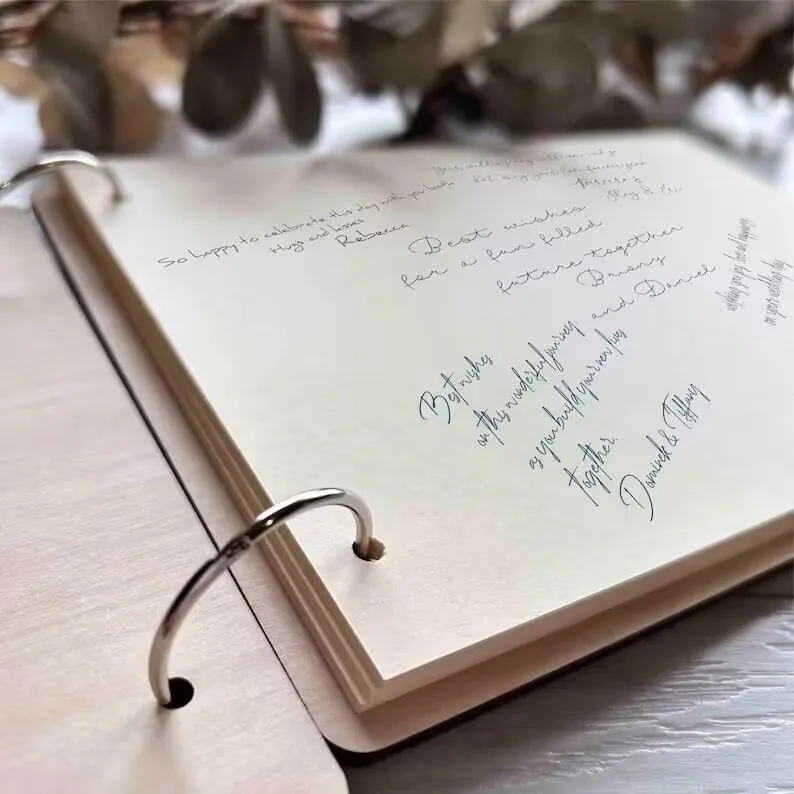 So happy to celebrate this day with you both
Hugs and kisses
Rebecca
Best wishes
for a fun filled
future together
Briony
and Daniel
Best wishes
on this wonderful journey,
as you build your new lives
together.
Dominick & Tiffany
wishing you joy, love and happiness
on your wedding day